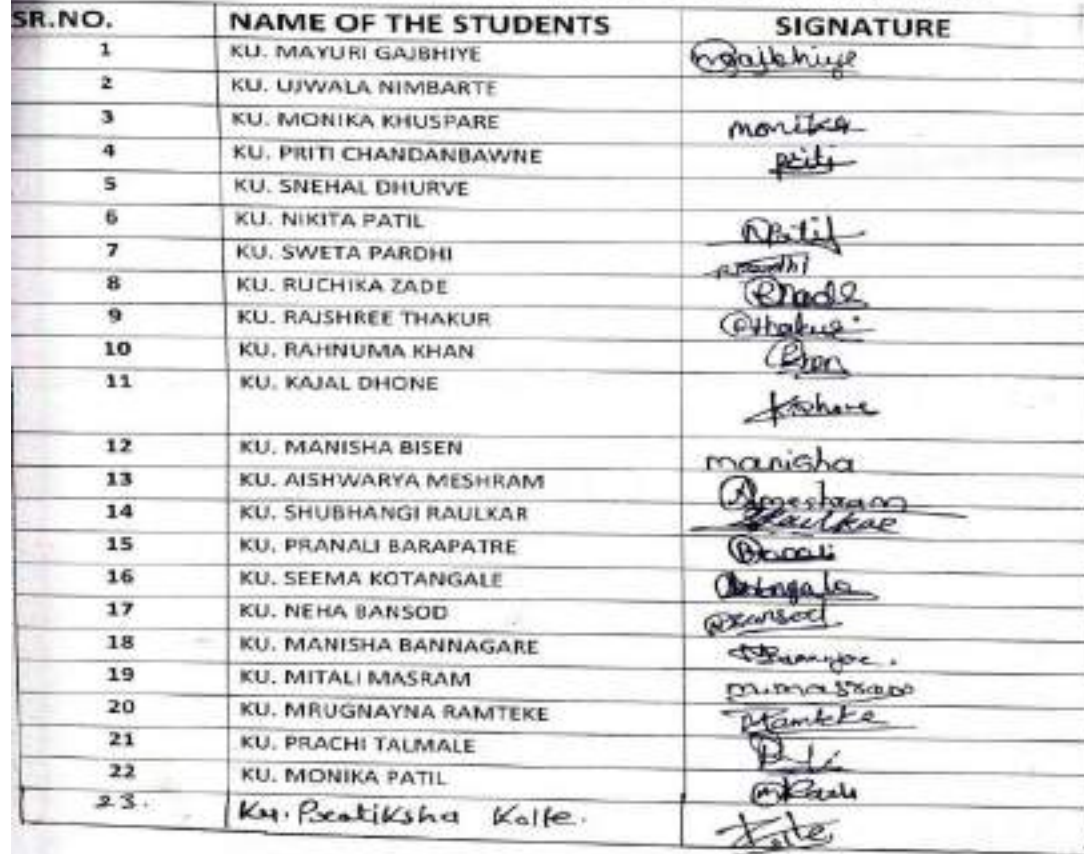 SR.NO. NAME OF THE STUDENTS SIGNATURE
1 KU. MAYURI GAJBHIYE mgajbhiye
2 KU. UJWALA NIMBARTE
3 KU. MONIKA KHUSPARE monika
4 KU. PRITI CHANDANBAWNE priti
5 KU. SNEHAL DHURVE
6 KU. NIKITA PATIL NPatil
7 KU. SWETA PARDHI
8 KU. RUCHIKA ZADE
9 KU. RAJSHREE THAKUR Rthakur
10 KU. RAHNUMA KHAN
11 KU. KAJAL DHONE
12 KU. MANISHA BISEN manisha
13 KU. AISHWARYA MESHRAM Ameshram
14 KU. SHUBHANGI RAULKAR
15 KU. PRANALI BARAPATRE
16 KU. SEEMA KOTANGALE
17 KU. NEHA BANSOD
18 KU. MANISHA BANNAGARE
19 KU. MITALI MASRAM m.masram
20 KU. MRUGNAYNA RAMTEKE Ramteke
21 KU. PRACHI TALMALE
22 KU. MONIKA PATIL
23. Ku. Pratiksha Kolte.